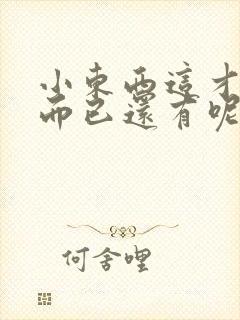 小東西這才
而已還有呢
何舍哩